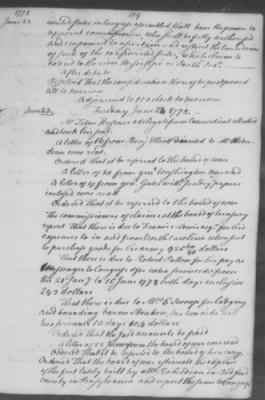 1778
119
June 22
united states in congress assembled shall have the power to
appoint commissioners, who shall be fully authorised
and empowered to ascertain and restrict the boundaries
of such of the confederated states, which claim to
extend to the river Mississippi or South Sea.
After debate
Resolved That the consideration thereof be postponed
till to morrow
Adjourned to 10 oClock to morrow
Tuesday, June 23, 1778.
June 23.
Mr Titus Hosmer a delegate from Connecticut attended
and took his seat.
A letter of from Benj directed to Mr
dean was read.
Ordered that it be referred to the board of war
A letter of 20 from genl Washington was read
A letter of 17 from genl Gates with sundry papers
inclosed was read
Ordered that it be referred to the board of war
The commissioners of claims at the board of treasury
report That there is due to Francis for his
expences in to and from North carolina when sent
to purchase goods for the army 935 dollars
That there is due to Robert Patton for his pay as
Messenger to Congress for extra services from
the 21 Jany to 15 June 1778 both days inclusive
243 dollars
That there is due to Mrs for lodging
and boarding baron Steuben, his two aids and
two servants 12 days 404 dollars
Ordered that the said accounts be paid
A letter of 22 from the board of war was read
Ordered That it be referred to the board of treasury.
Ordered That the board of war
of the fort lately built by
county in Pensylvania and report the same to Congress